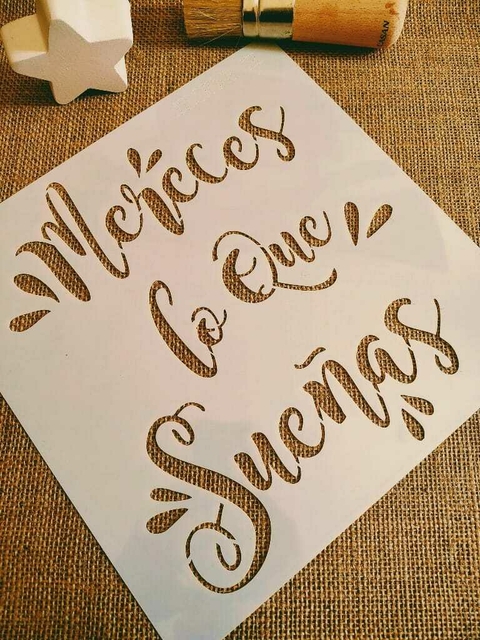 Mereces
lo Que
Sueñas